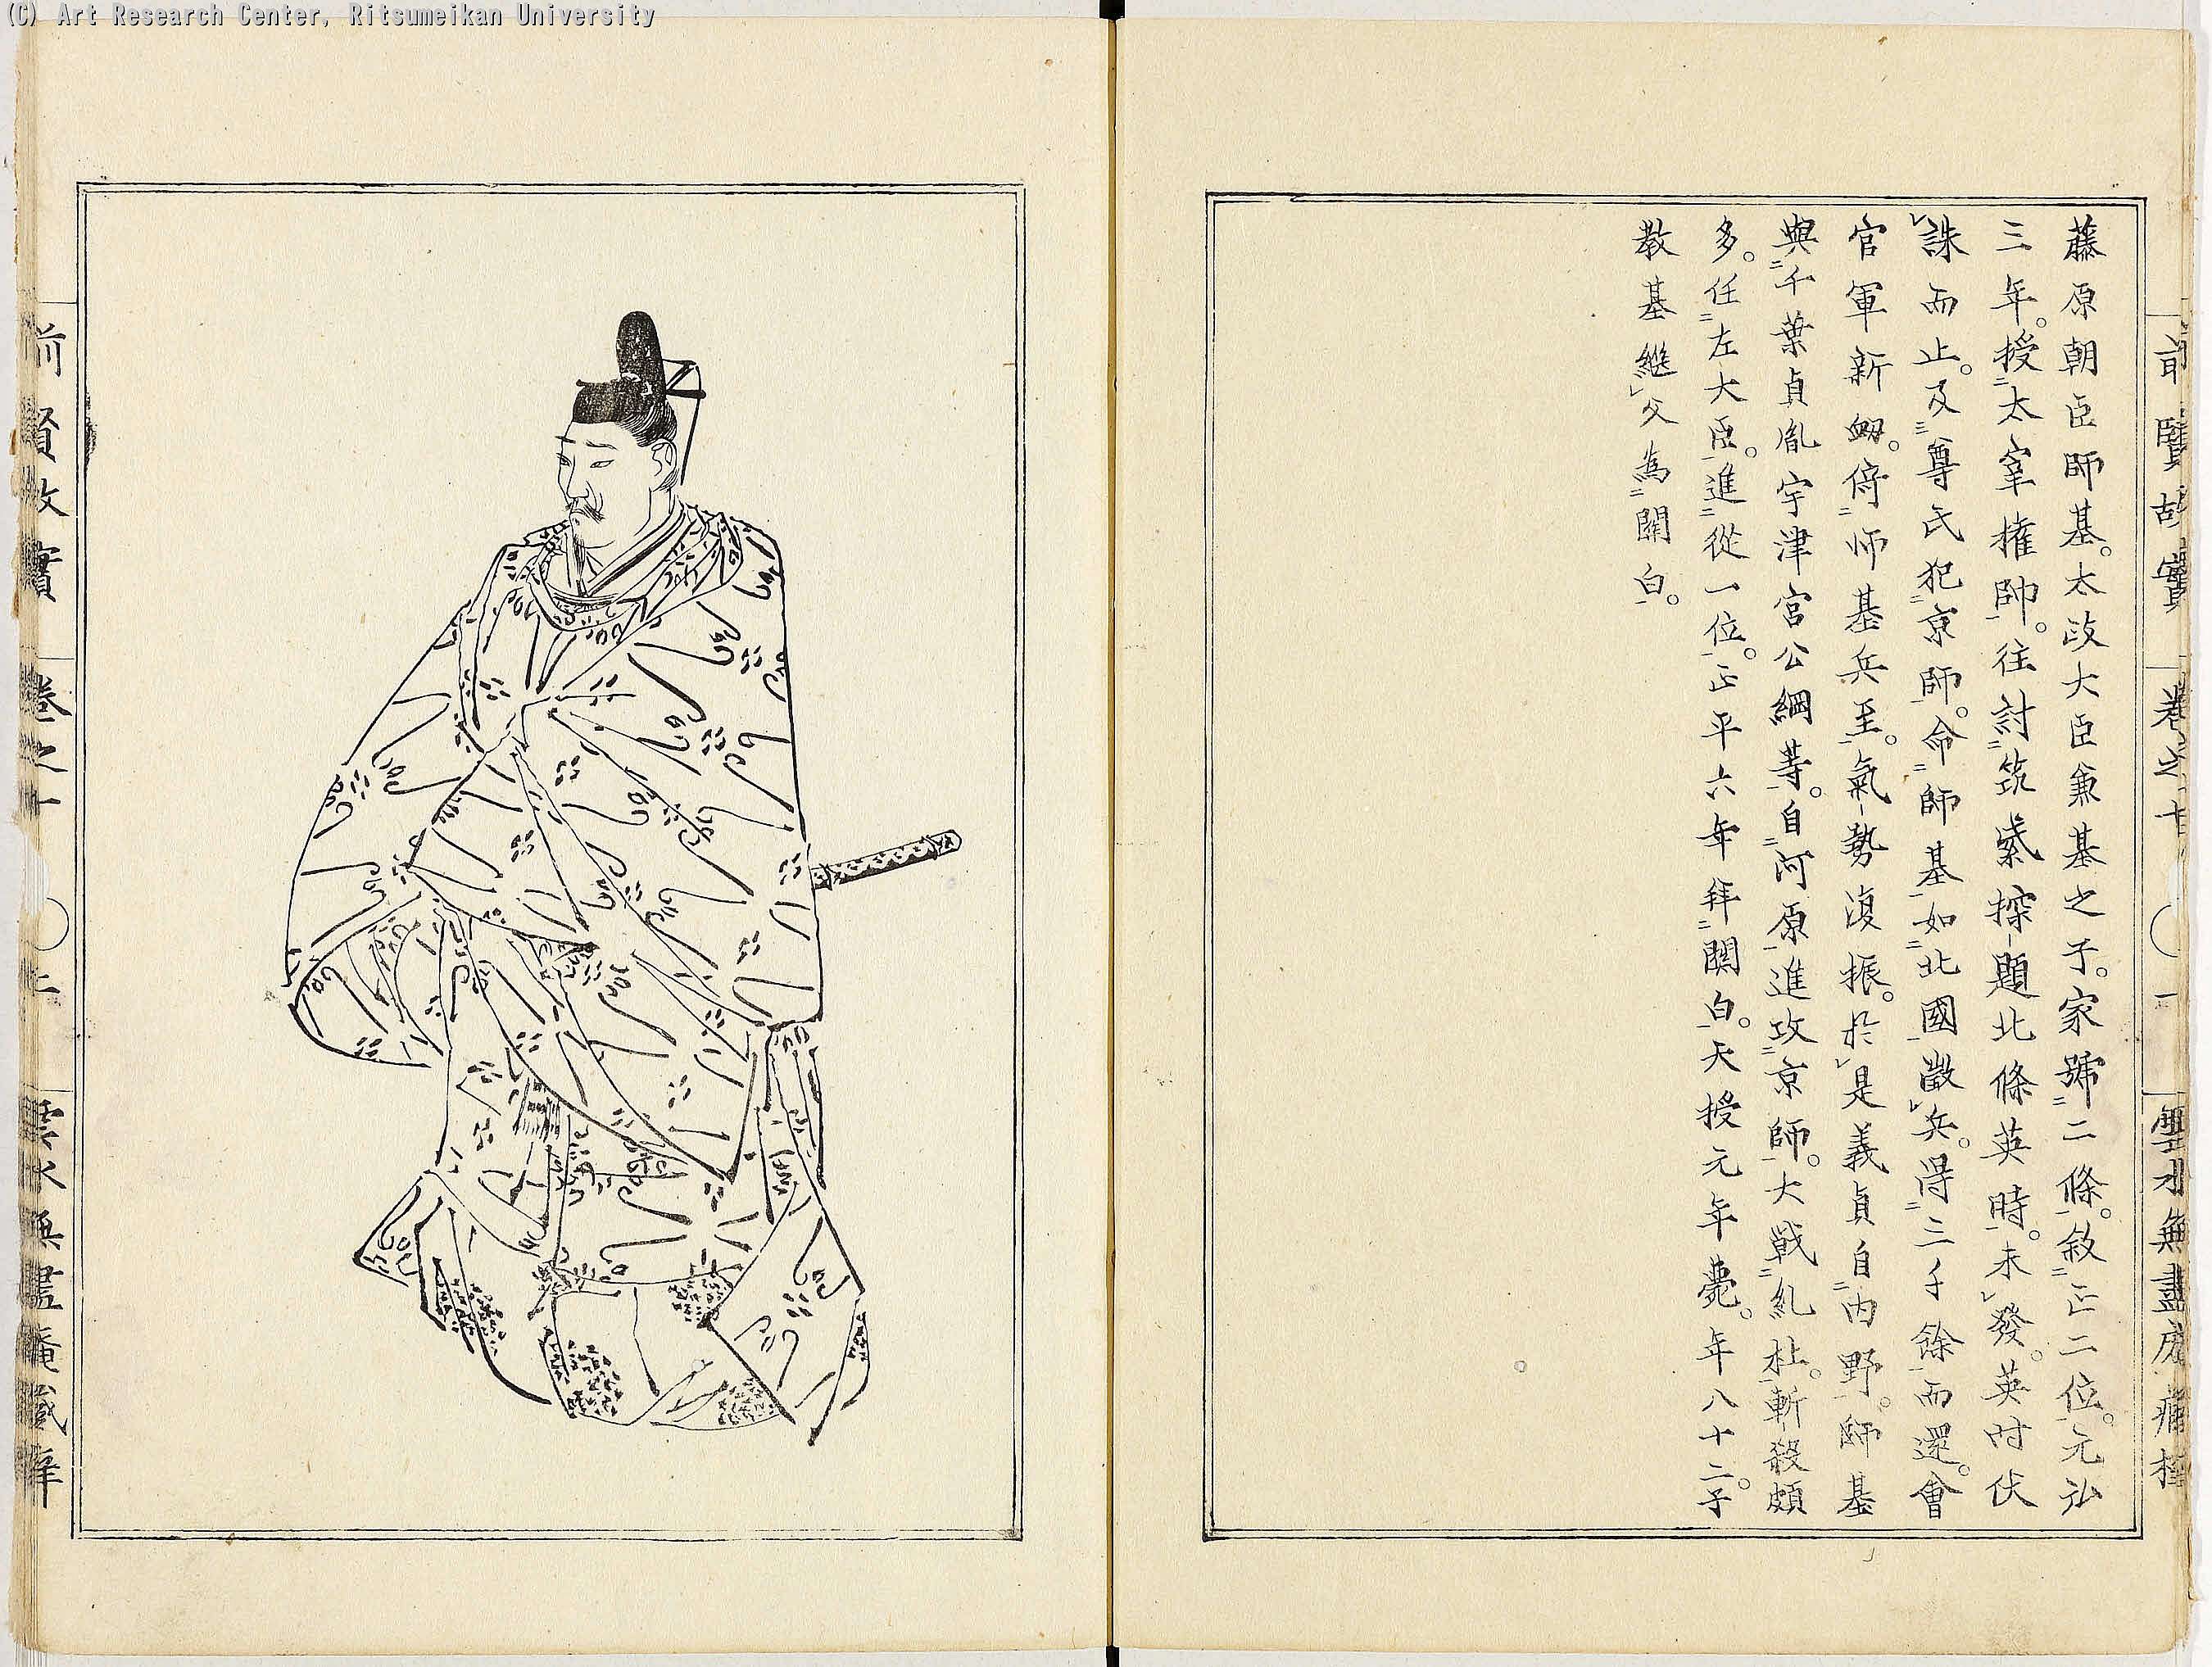 (C) Art Research Center, Ritsumeikan University
前賢故實 卷之十 〇一 雲水無盡庵藏梓
藤原朝臣師基。太政大臣兼基之子。家號二條。敘正二位。元弘
三年。授太宰權帥。往討筑紫探題北條英時。未發。英時伏
誅而止。及尊氏犯京師。命師基如北國徵兵。得三千餘而還。會
官軍新衂。偫师基兵至。氣勢復振。於是義貞自內野。師基
與千葉貞胤宇津宮公綱等。自河原進攻京師。大戰糺杜。斬殺頗
多。任左大臣。進從一位。正平六年拜關白。天授元年薨。年八十二。子
教基繼父為關白。
前賢故實 卷之十 〇二 雲水無盡庵藏梓